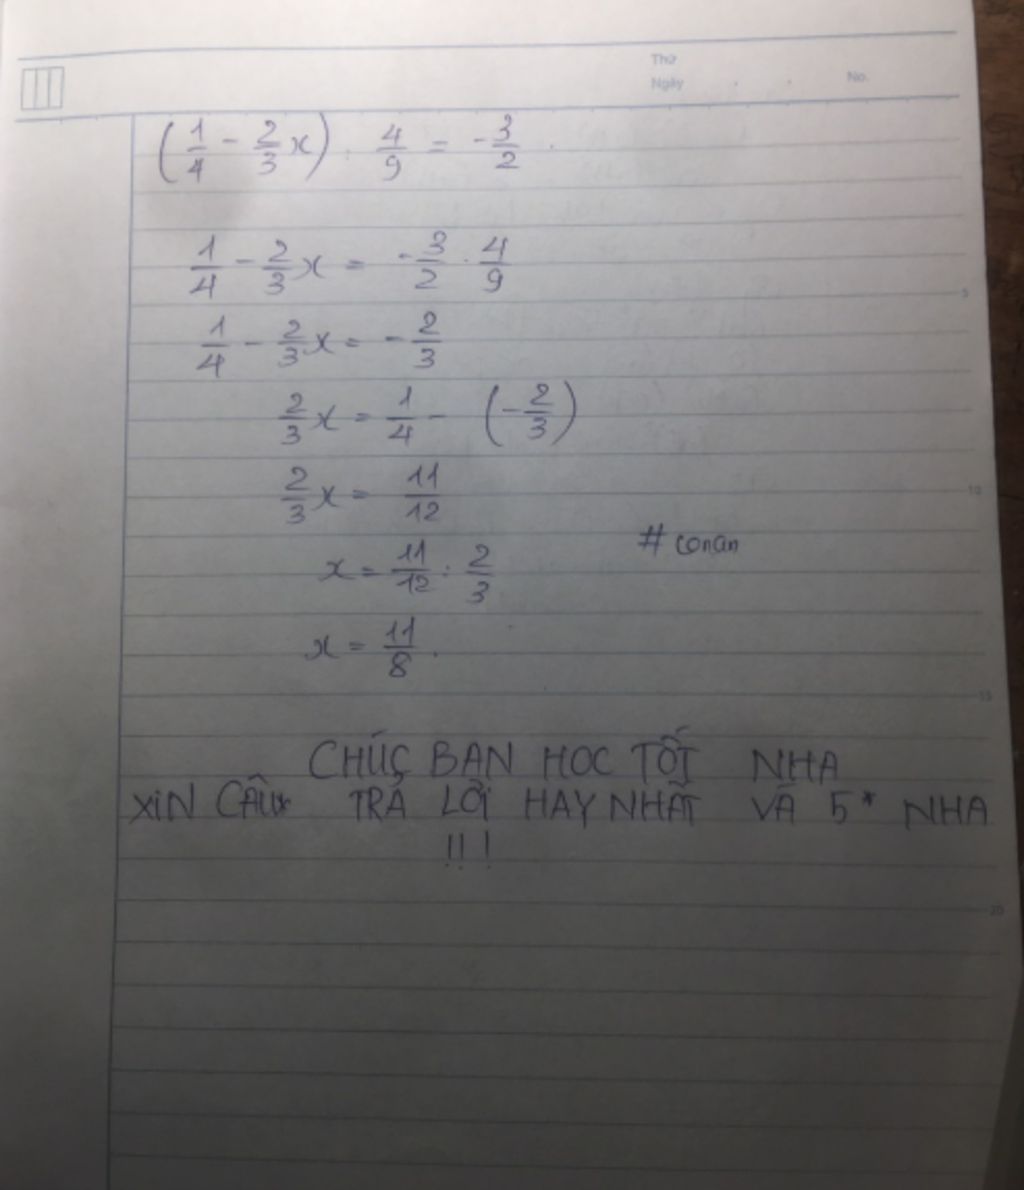 Thứ
Ngày . . No.
(1/4 - 2/3 x) : 4/9 = -3/2 .
1/4 - 2/3 x = -3/2 . 4/9
5
1/4 - 2/3 x = -2/3
2/3 x = 1/4 - (-2/3)
2/3 x = 11/12
10
# conan
x = 11/12 : 2/3
x = 11/8 .
15
CHÚC BẠN HỌC TỐT NHA
XIN CÂU TRẢ LỜI HAY NHẤT VÀ 5* NHA
!! !
20